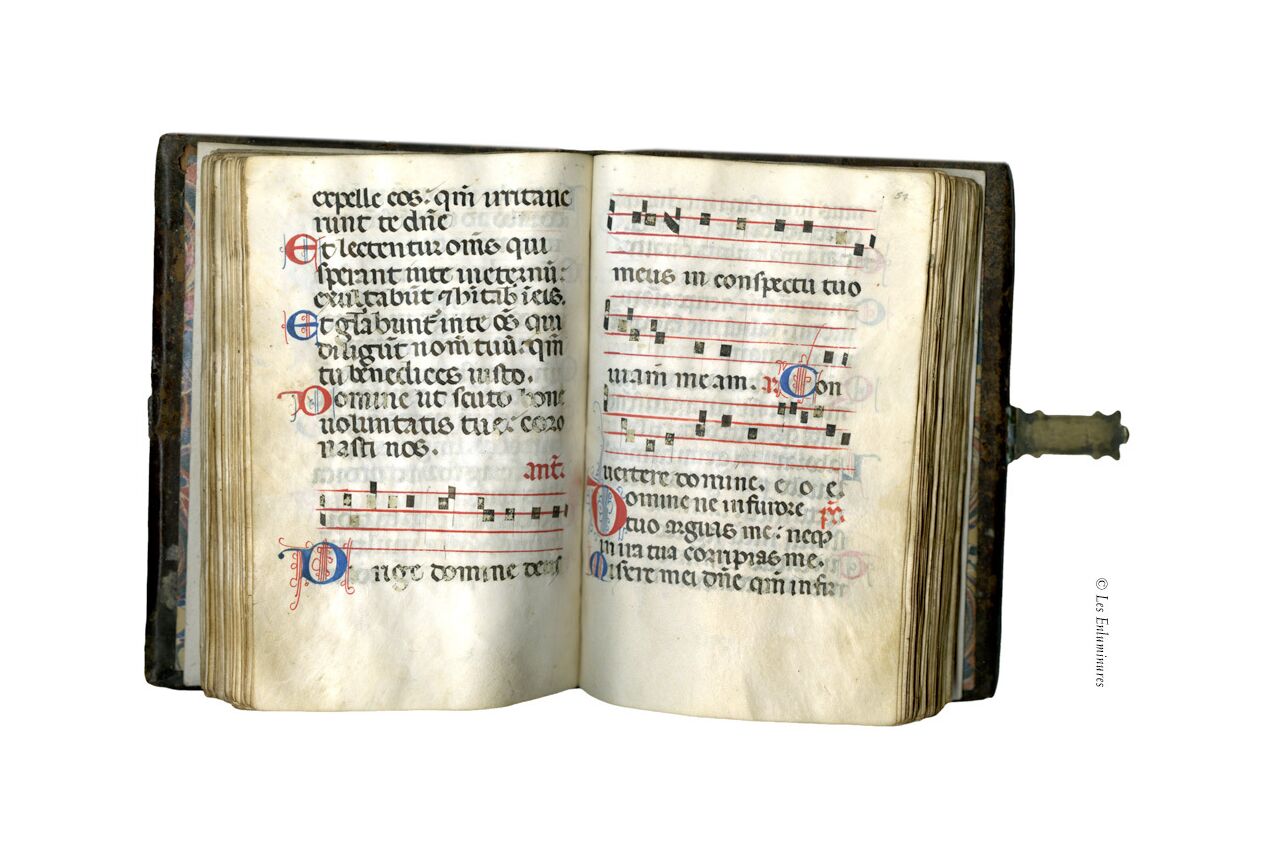 expelle eos. qm̄ irritaue
runt te dn̄e
Et letentur om̄s qui
sperant in te in eternū:
exultabūt ⁊ hītab̄ ī eis.
Et gl̄abunt̄ in te ōs qui
diligūt nom̄ tuū: qm̄
tu benedices iusto.
Domine ut scuto bone
uoluntatis tue: coro
nasti nos.
ant̄.
Dirige domine deus
51
meus in conspectu tuo
uiam meam. Con
uertere domine. e o e.
Domine ne in furore
tuo arguas me: neqꝫ
in ira tua corripias me.
Miserere mei dn̄e qm̄ infir
© Les Enluminures